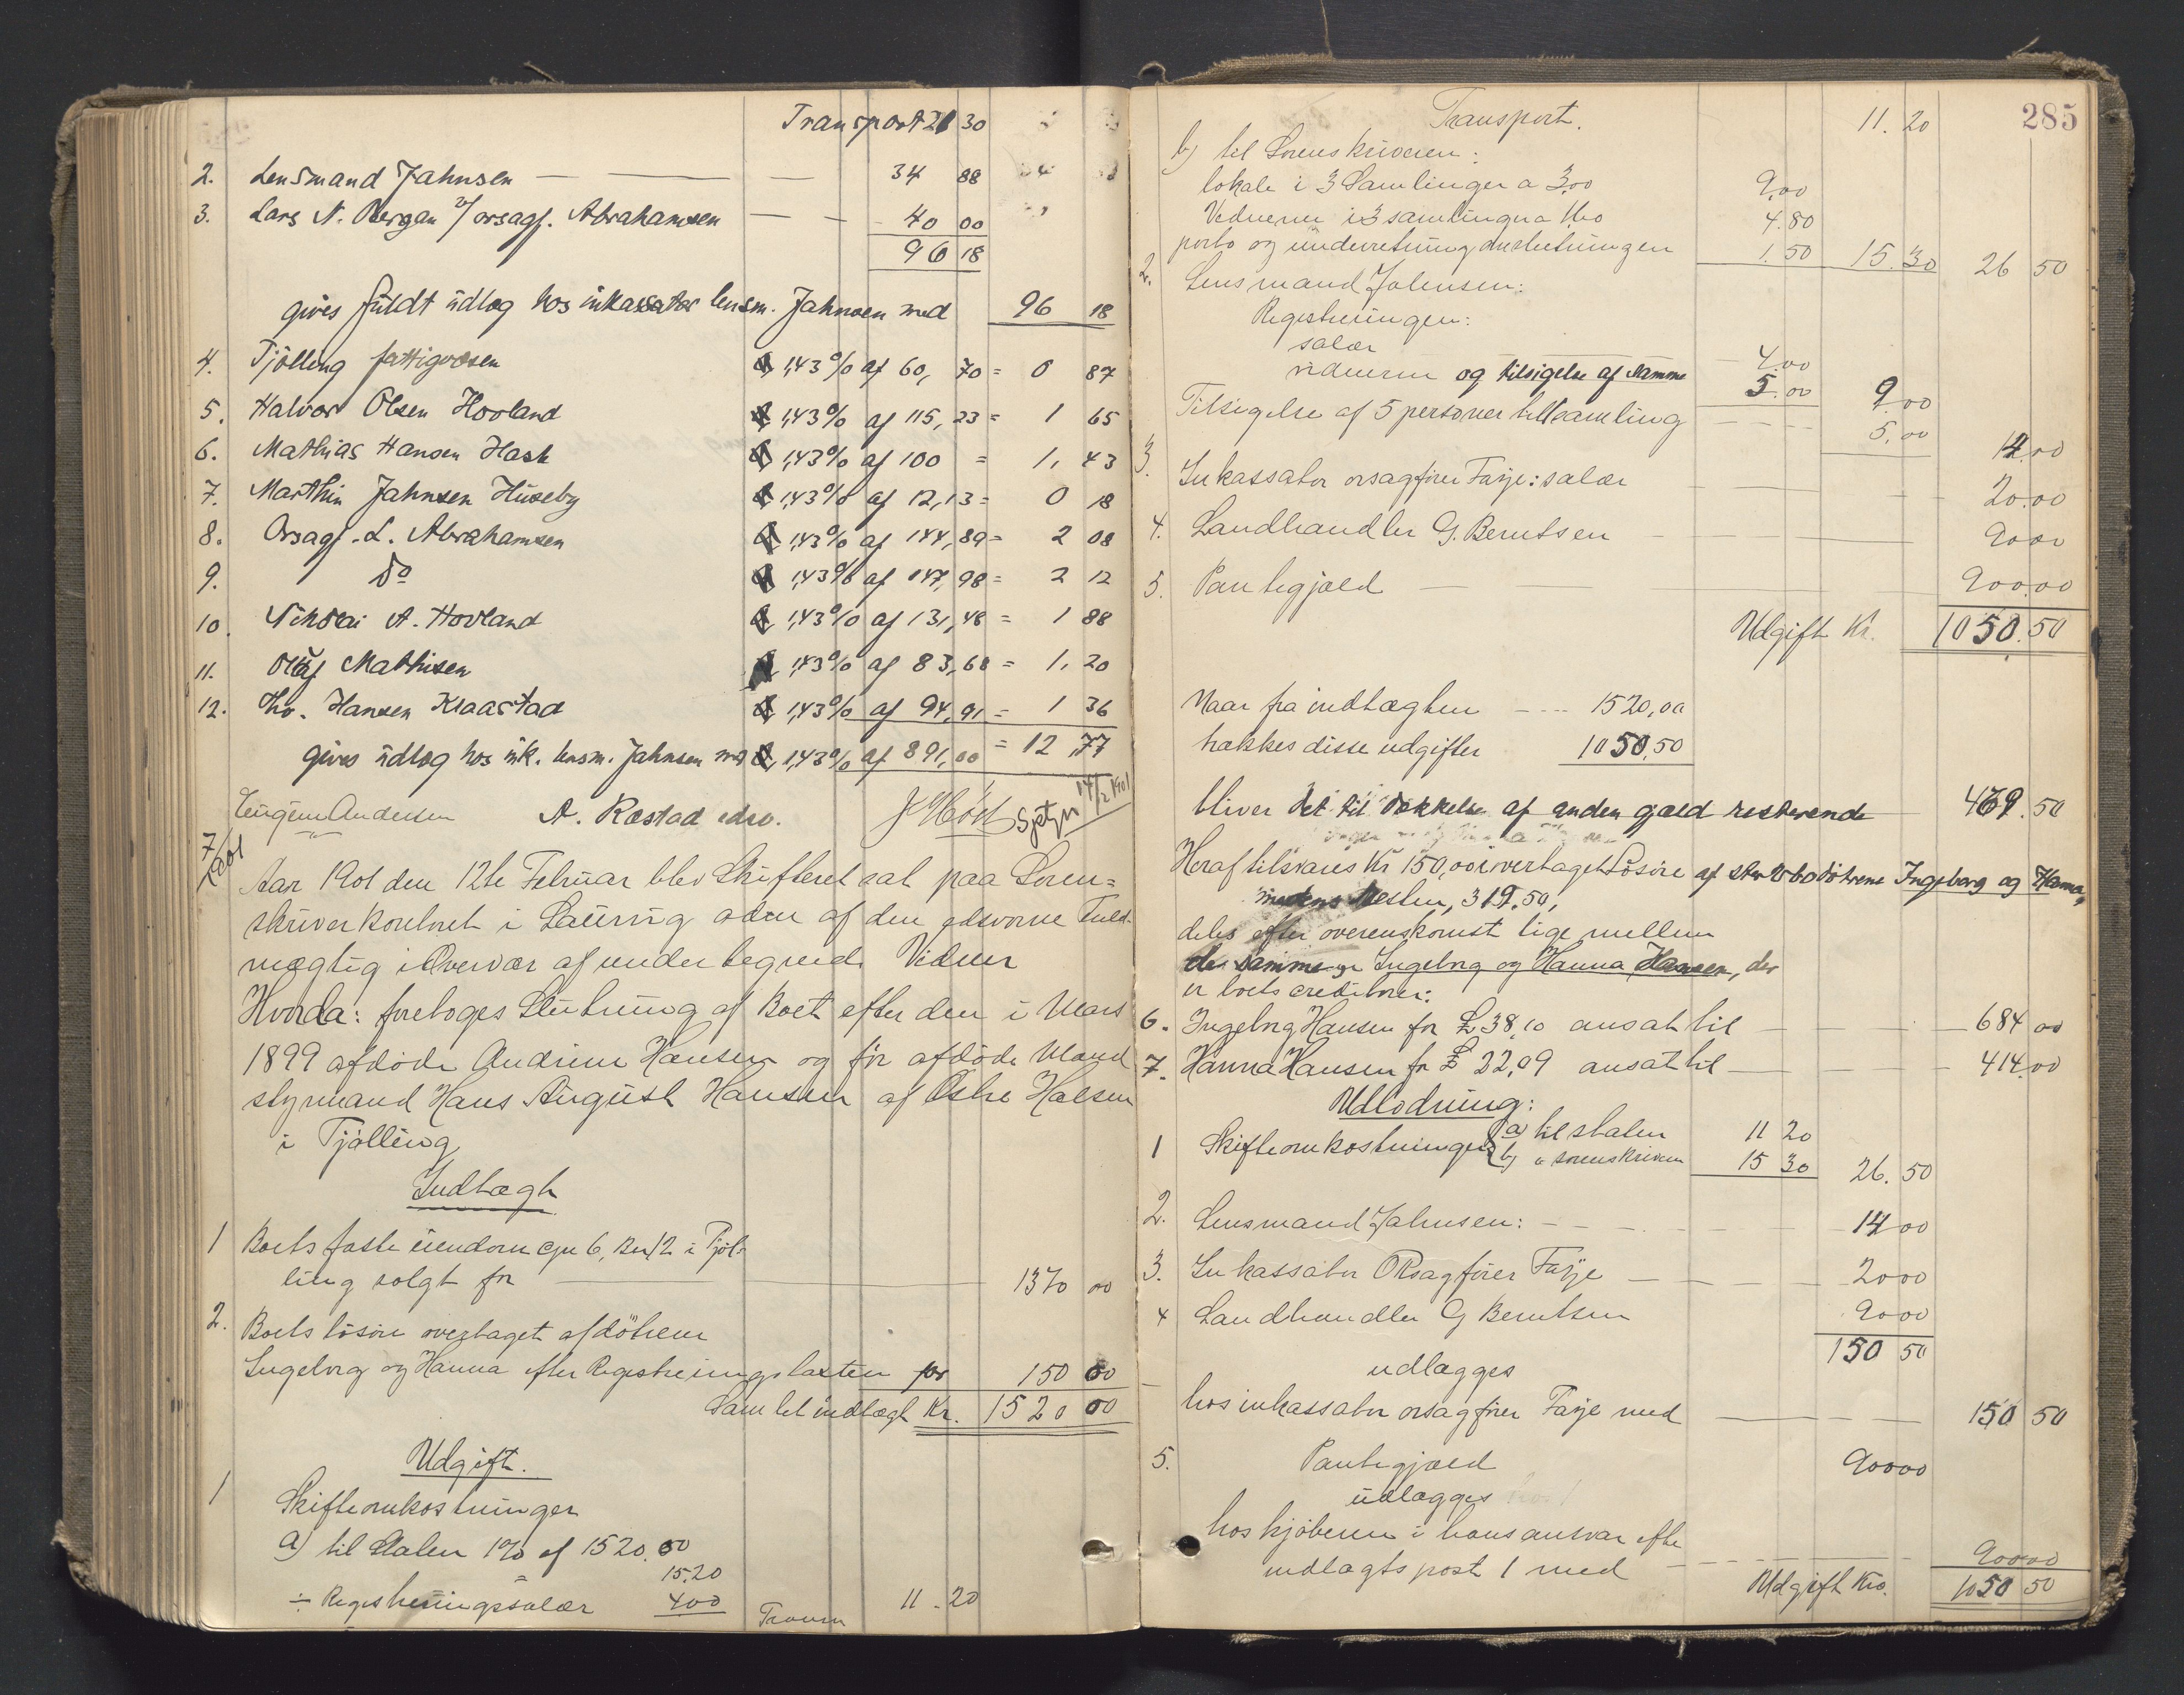 Transport 21 30
2. Lensmand Jahnsen — — — 34 88
3. Lars N. Bergan v/ orsagf. Abrahamsen — — 40 00
96 18
gives fuldt udlæg hos inkassator lensm. Jahnsen med 96 18
4. Tjölling fattigvæsen 1,43 % af 60,70 = 0 87
5. Halvor Olsen Hovland 1,43 % af 115,23 = 1 65
6. Mathias Hansen Hask 1,43 % af 100 = 1,43
7. Marthin Jahnsen Huseby 1,43 % af 12,13 = 0 18
8. Orsagf. L. Abrahamsen 1,43 % af 144,89 = 2 08
9. Do 1,43 % af 147,98 = 2 12
10. Nikolai A. Hovland 1,43 % af 131,48 = 1 88
11. Olaf Mathisen 1,43 % af 83,68 = 1,20
12. Hansen Kraastad 1,43 % af 94,91 = 1 36
gives udlæg hos ink. lensm. Jahnsen med 1,43 % af 891,00 = 12,77
Eugen Andersen A. Røstad edsv. J Høst 14/2 1901
7/1901
Aar 1901 den 12te Februar blev Skifteret sat paa Soren=
skriverkontoret i Laurvig af den edsvorne Fuld-
mægtig i Overvær af undertegnede Vidner
Hvorda: foretoges Slutning af Boet efter den i Mars
1899 afdöde Andrine Hansen og för afdöde Mand
styrmand Hans August Hansen af Östre Halsen
i Tjölling
Indtægt
1 Boets faste eiendom gn 6, Bn 12 i Tjöl-
ling solgt for — 1370 00
2. Boets lösöre overtaget af dötrene
Ingeborg og Hanna efter Registreringstaxten for 150 00
Samlet indtægt Kr. 1520 00
Udgift.
1 Skifteomkostninger
a) til Staten 1% af 1520.00
15.20
÷ Registreringssalær 4 00 11.20
285
Transport. 11.20
b) til Sorenskriveren:
lokale i 3 Samlinger a 3,00 9,00
Vidnerne i 3 samlinger a 1,60 4.80
porto og underretning om slutningen 1.50 15.30 26 50
2. Lensmand Jahnsen:
Registreringen:
salær 4.00
vidnerne og tilsigelse af samme 5.00 9,00
Tilsigelse af 5 personer til samling 5,00 14.00
3. Inkassator orsagförer Farje: salær 20.00
4. Landhandler G. Berntsen 90 00
5. Pantegjæld 900.00
Udgift Kr. 1050.50
Naar fra indtægten 1520,00
trækkes disse udgifter 1050,50
bliver det til dækkelse af anden gæld resterende 469.50
Heraf tilsvares Kr 150,00 i overtaget Lösöre af dötrene Ingeborg og Hanna,
medens Resten, 319.50,
deles efter overenskomst lige mellem
de samme Ingeborg og Hanna Hansen, der
er boets creditorer:
6. Ingeborg Hansen for £ 38,10 ansat til 684 00
7. Hanna Hansen for £ 22,09 ansat til 414.00
Udlodning:
1 Skifteomkostninger a) til staten 11 20
b) " sorenskriveren 15 30 26.50
2. Lensmand Jahnsen: 14 00
3. Inkassator ORsagförer Farje 20 00
4 Landhandler G Berntsen 90 00
150 50
udlægges
hos inkassator orsagförer Farje med 150 50
5. Pantegjæld 900 00
udlægges
hos kjöberen i hans ansvar efter
indtægts post 1 med 900 00
Udgift Kr. 1050 50